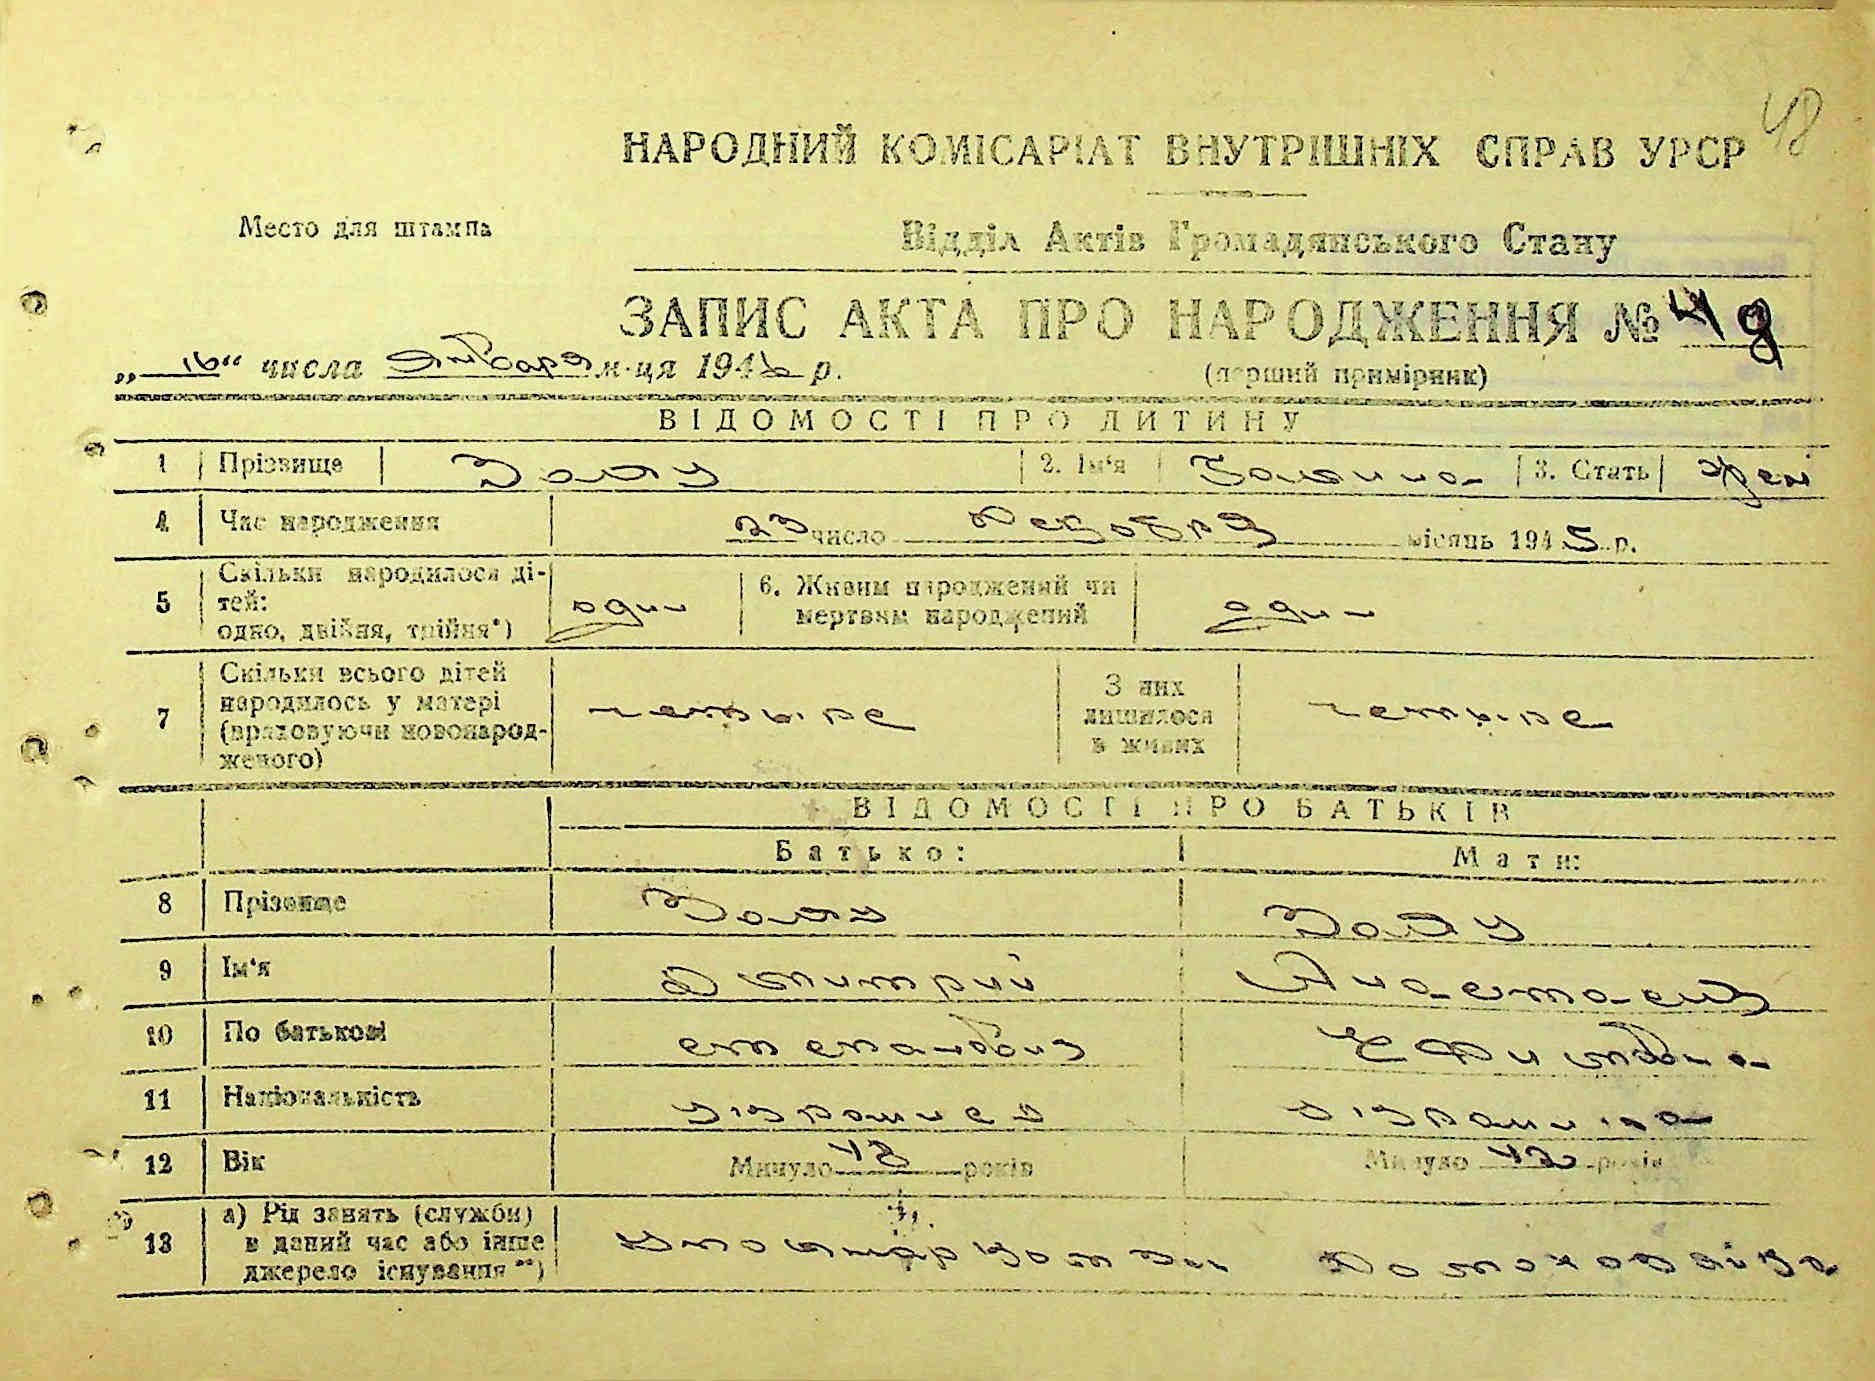 48
НАРОДНИЙ КОМІСАРІАТ ВНУТРІШНІХ СПРАВ УРСР
Место для штампа
Відділ Актів Громадянського Стану
ЗАПИС АКТА ПРО НАРОДЖЕННЯ № 48
„16“ числа Января м-ця 1946 р.
(перший примірник)
ВІДОМОСТІ ПРО ДИТИНУ
1 Прізвище 2. Ім'я Галина 3. Стать жен
4 Час народження 23 число Декабря місяць 1945 р.
5 Скільки народилося дітей: одно, двійня, трійня*) один 6. Живим народжений чи мертвим народжений один
7 Скільки всього дітей народилось у матері (враховуючи новонародженого) четыре З них лишилося в живих четыре
ВІДОМОСТІ ПРО БАТЬКІВ
Батько: Мати:
8 Прізвище
9 Ім'я Дмитрий Анастасия
10 По батькові Степанович Ефимовна
11 Національність украинец украинка
12 Вік Минуло 48 років Минуло 42 років
13 а) Рід занять (служби) в даний час або інше джерело існування**) Домохозяйка